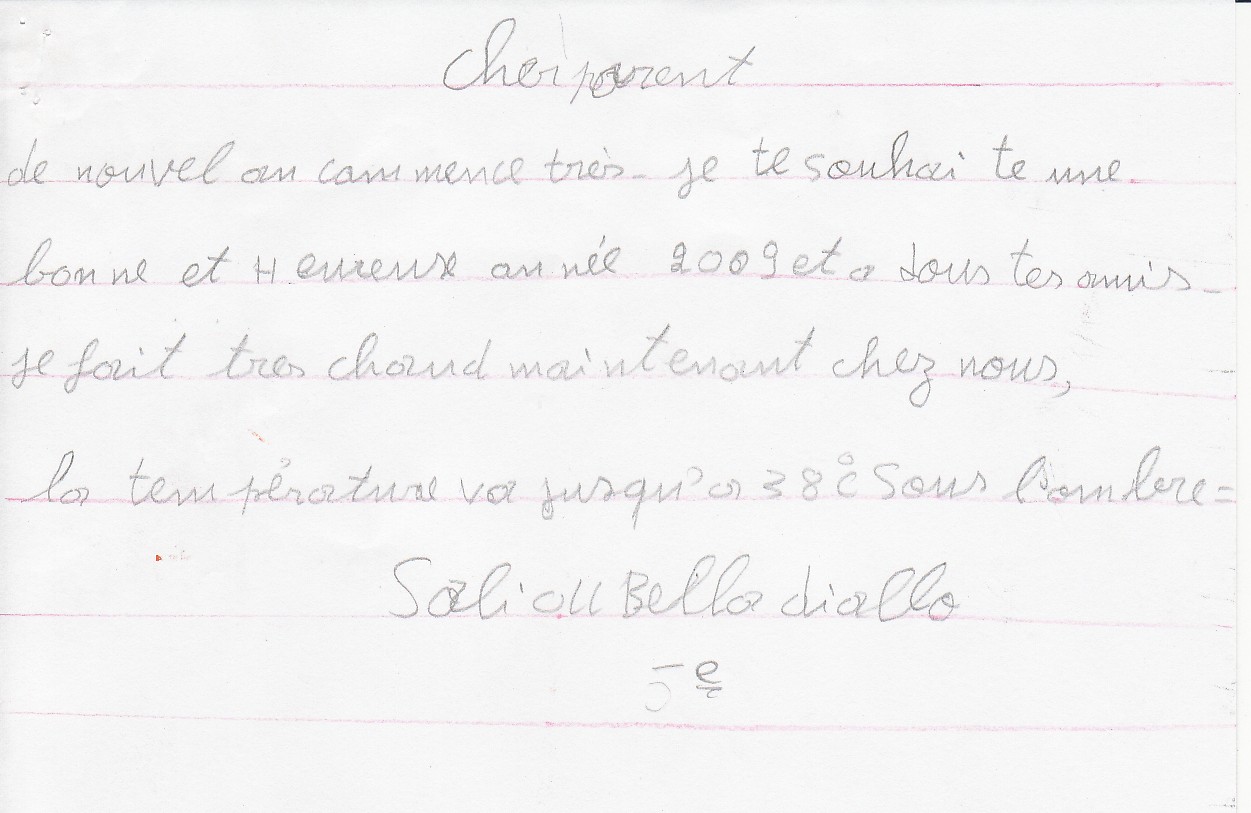 Cher parent
de nouvel an commence très- je te souhai te une
bonne et Heureuse année 2009 et a tous tes amis-
je fait tres chaud maintenant chez nous,
la température va jusqu'a 38°C Sous l'ombre=
Saliou Bella diallo
5e